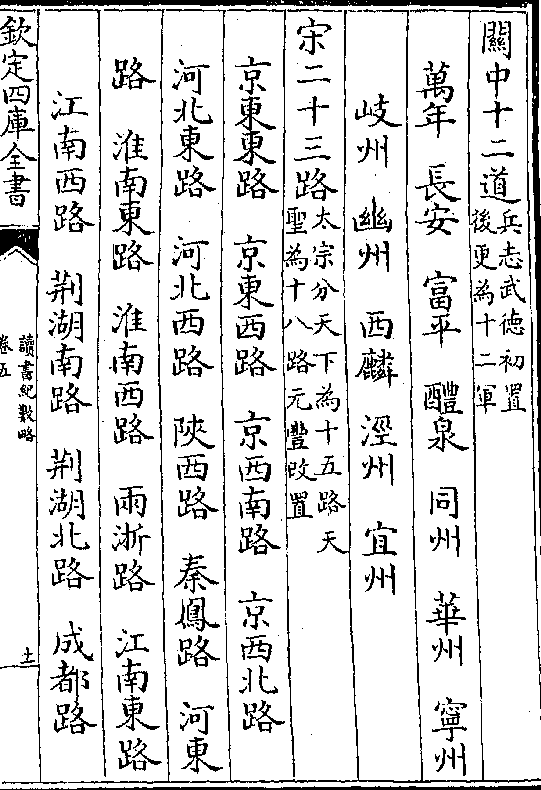 關中十二道兵志武德初置
後更為十二軍
萬年　長安　富平　醴泉　同州　華州　寧州
岐州　豳州　西麟　涇州　宜州
宋二十三路太宗分天下為十五路天
聖為十八路元豐改置
京東東路　京東西路　京西南路　京西北路
河北東路　河北西路　陜西路　秦鳳路　河東
路　淮南東路　淮南西路　兩浙路　江南東路
江南西路　荆湖南路　荆湖北路　成都路
欽定四庫全書
讀書紀數略
卷五
十一